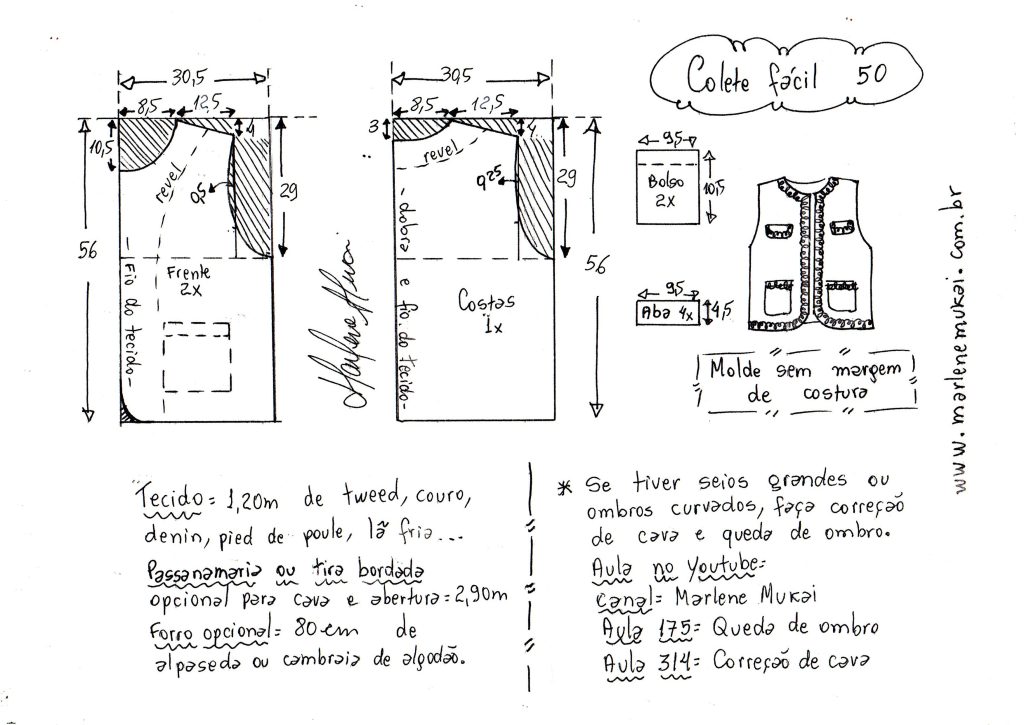 Colete fácil 50
30,5
8,5 12,5
4
10,5
revel
0,5
29
56
Fio do tecido
Frente
2x
30,5
8,5 12,5
3
4
revel
0,25
29
56
dobra e fio do tecido
Costas
1x
9,5
Bolso
2x
10,5
9,5
Aba 4x
4,5
Molde sem margem
de costura
www.marlenemukai.com.br
Tecido = 1,20m de tweed, couro,
denin, pied de poule, lã fria...
Passanamaria ou tira bordada
opcional para cava e abertura = 2,90m
Forro opcional = 80 cm de
alpaseda ou cambraia de algodão.
* Se tiver seios grandes ou
ombros curvados, faça correção
de cava e queda de ombro.
Aula no Youtube=
Canal= Marlene Mukai
Aula 175= Queda de ombro
Aula 314= Correção de cava